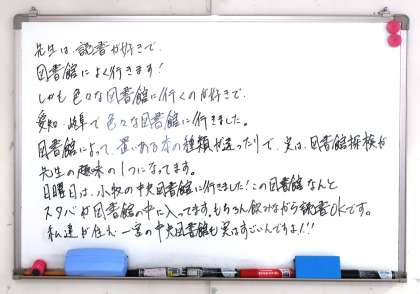 先生は、読書が好きで、
図書館によく行きます！
しかも色々な図書館に行くのが好きで、
愛知・岐阜で色々な図書館に行きました。
図書館によって、置いある本の種類が違ったりで、実は、図書館探検が
先生の趣味の1つになってます。
日曜日は、小牧の中央図書館に行きました！この図書館なんと
スタバが図書館の中に入ってます。もちろん飲みながら読書OKです。
私達が住む一宮の中央図書館も実はすごいんですよ！！